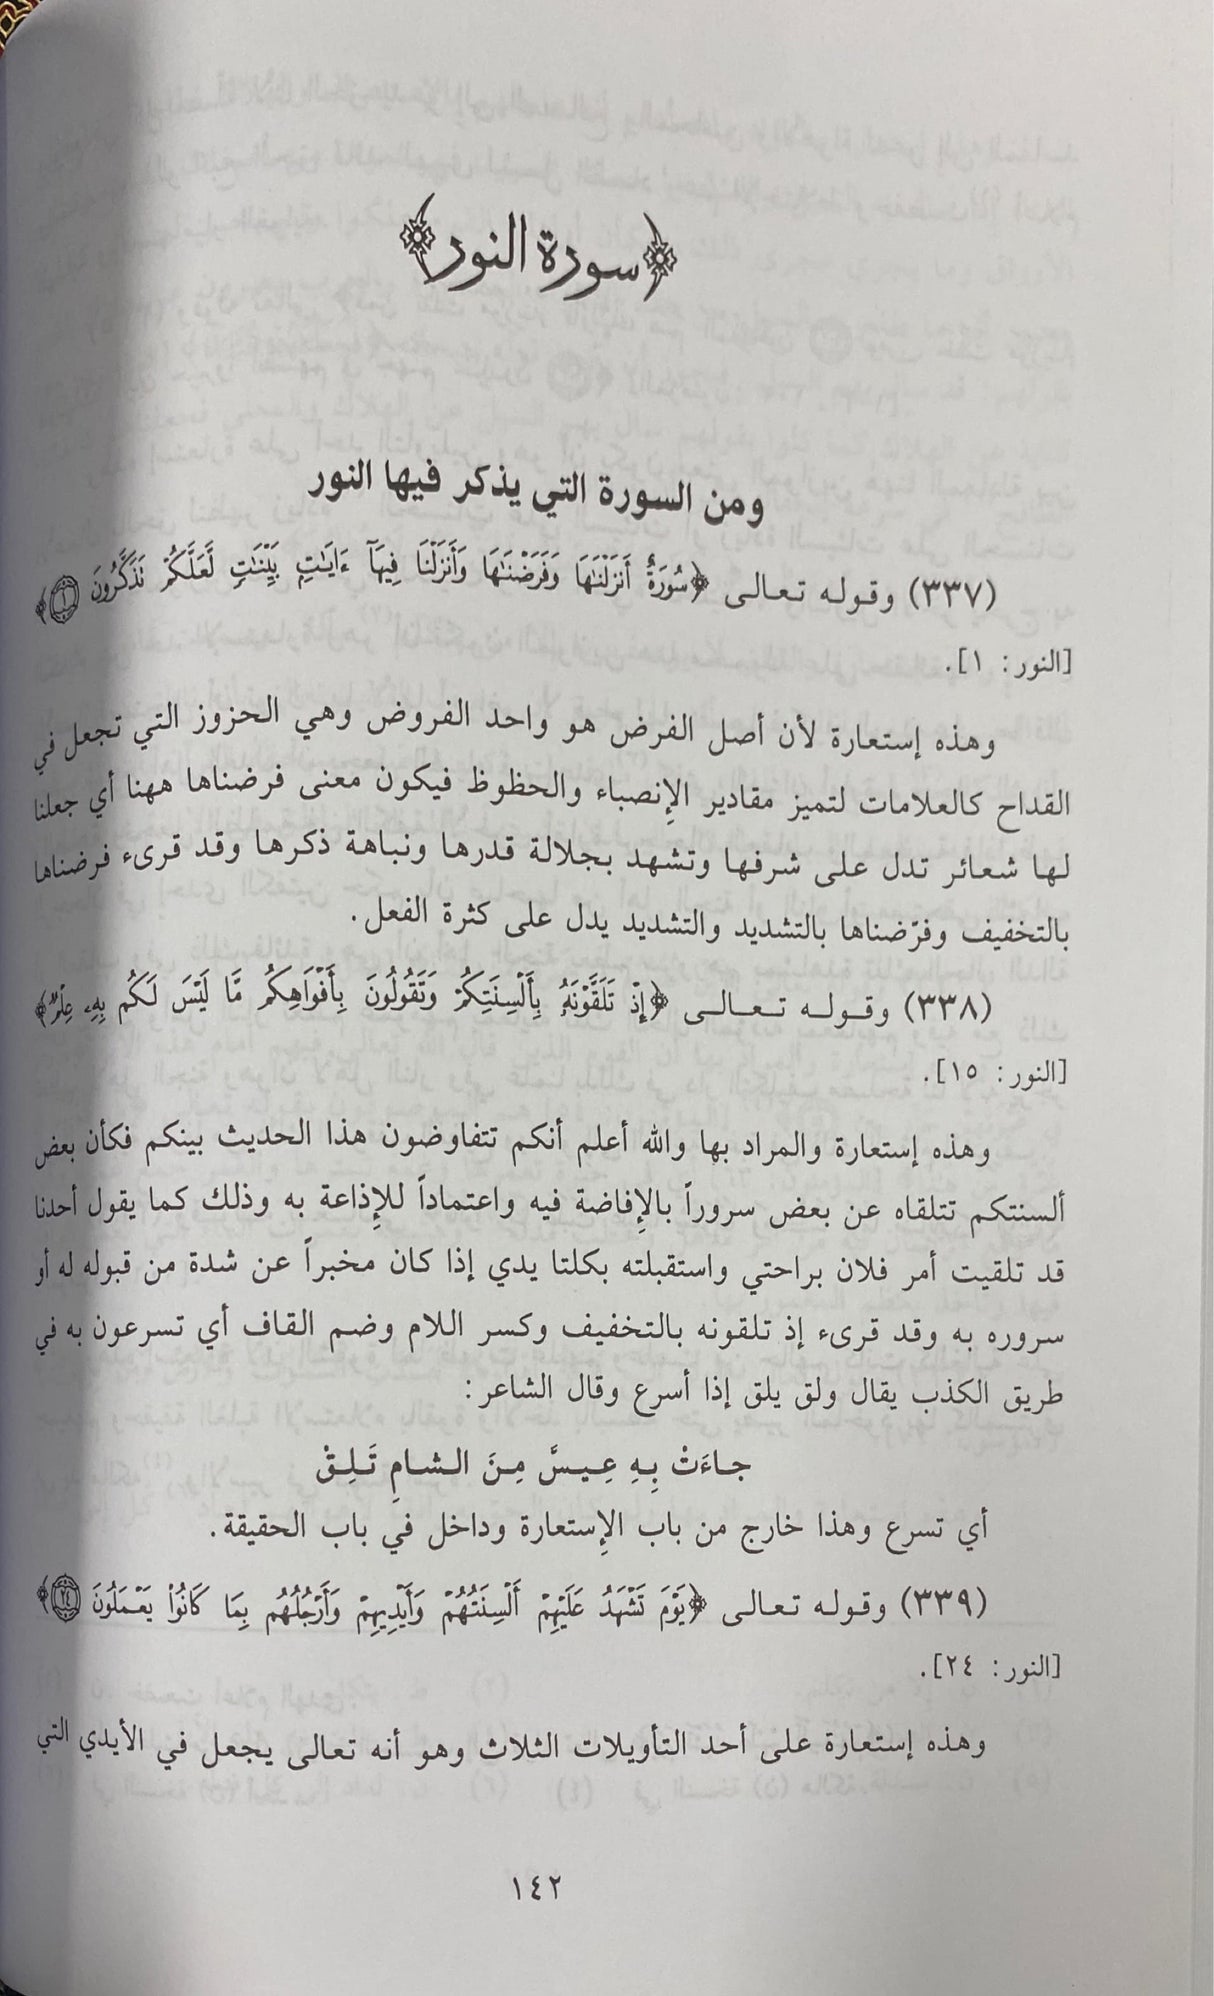 ﴿سورة النور﴾
ومن السورة التي يذكر فيها النور
(٣٣٧) وقوله تعالى ﴿سُورَةٌ أَنزَلْنَٰهَا وَفَرَضْنَٰهَا وَأَنزَلْنَا فِيهَآ ءَايَٰتٍۭ بَيِّنَٰتٍ لَّعَلَّكُمْ تَذَكَّرُونَ ١﴾
[النور: ١].
وهذه إستعارة لأن أصل الفرض هو واحد الفروض وهي الحزوز التي تجعل في
القداح كالعلامات لتميز مقادير الإنصباء والحظوظ فيكون معنى فرضناها ههنا أي جعلنا
لها شعائر تدل على شرفها وتشهد بجلالة قدرها ونباهة ذكرها وقد قرىء فرضناها
بالتخفيف وفرّضناها بالتشديد والتشديد يدل على كثرة الفعل.
(٣٣٨) وقوله تعالى ﴿إِذْ تَلَقَّوْنَهُۥ بِأَلْسِنَتِكُمْ وَتَقُولُونَ بِأَفْوَاهِكُم مَّا لَيْسَ لَكُم بِهِۦ عِلْمٌ﴾
[النور: ١٥].
وهذه إستعارة والمراد بها والله أعلم أنكم تتفاوضون هذا الحديث بينكم فكأن بعض
ألسنتكم تتلقاه عن بعض سروراً بالإفاضة فيه واعتماداً للإذاعة به وذلك كما يقول أحدنا
قد تلقيت أمر فلان براحتي واستقبلته بكلتا يدي إذا كان مخبراً عن شدة من قبوله له أو
سروره به وقد قرىء إذ تلقونه بالتخفيف وكسر اللام وضم القاف أي تسرعون به في
طريق الكذب يقال ولق يلق إذا أسرع وقال الشاعر:
جاءَتْ بِهِ عِيسَّ مِنَ الشامِ تَلِقْ
أي تسرع وهذا خارج من باب الإستعارة وداخل في باب الحقيقة.
(٣٣٩) وقوله تعالى ﴿يَوْمَ تَشْهَدُ عَلَيْهِمْ أَلْسِنَتُهُمْ وَأَيْدِيهِمْ وَأَرْجُلُهُم بِمَا كَانُوا۟ يَعْمَلُونَ ٢٤﴾
[النور: ٢٤].
وهذه إستعارة على أحد التأويلات الثلاث وهو أنه تعالى يجعل في الأيدي التي
١٤٢